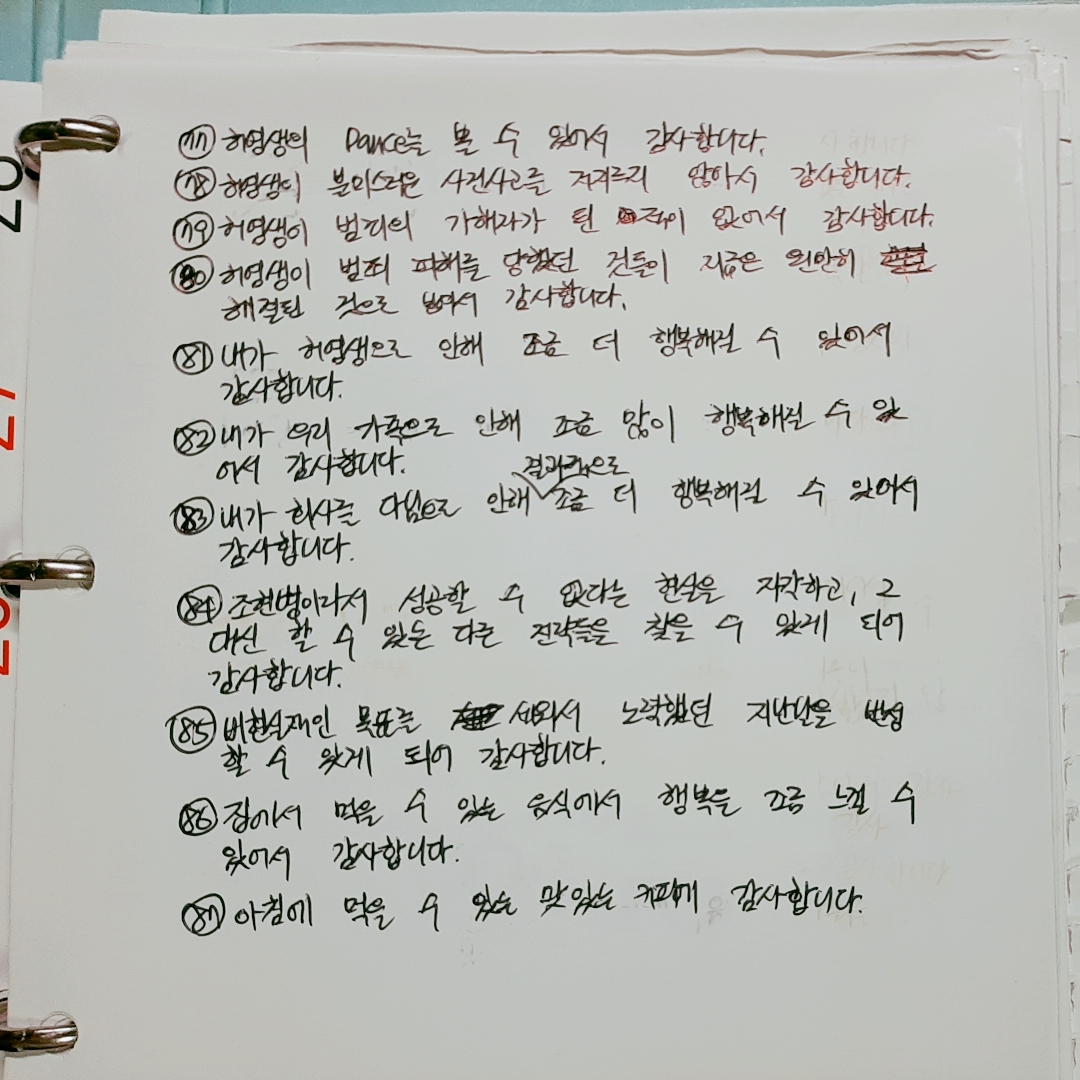 77 허영생의 Dance를 볼 수 있어서 감사합니다.
78 허영생이 불미스러운 사건사고를 저지르지 않아서 감사합니다.
79 허영생이 범죄의 가해자가 된 적이 없어서 감사합니다.
80 허영생이 범죄 피해를 당했던 것들이 지금은 원만히
해결된 것으로 보여서 감사합니다.
81 내가 허영생으로 인해 조금 더 행복해질 수 있어서
감사합니다.
82 내가 우리 가족으로 인해 조금 많이 행복해질 수 있
어서 감사합니다.
결과적으로
83 내가 회사를 다님으로 인해 조금 더 행복해질 수 있어서
감사합니다.
84 조현병이라서 성공할 수 없다는 현실을 자각하고, 그
대신 할 수 있는 다른 전략들을 찾을 수 있게 되어
감사합니다.
85 비현실적인 목표를 세워서 노력했던 지난날을 반성
할 수 있게 되어 감사합니다.
86 집에서 먹을 수 있는 음식에서 행복을 조금 느낄 수
있어서 감사합니다.
87 아침에 먹을 수 있는 맛있는 커피에 감사합니다.
26
27
28